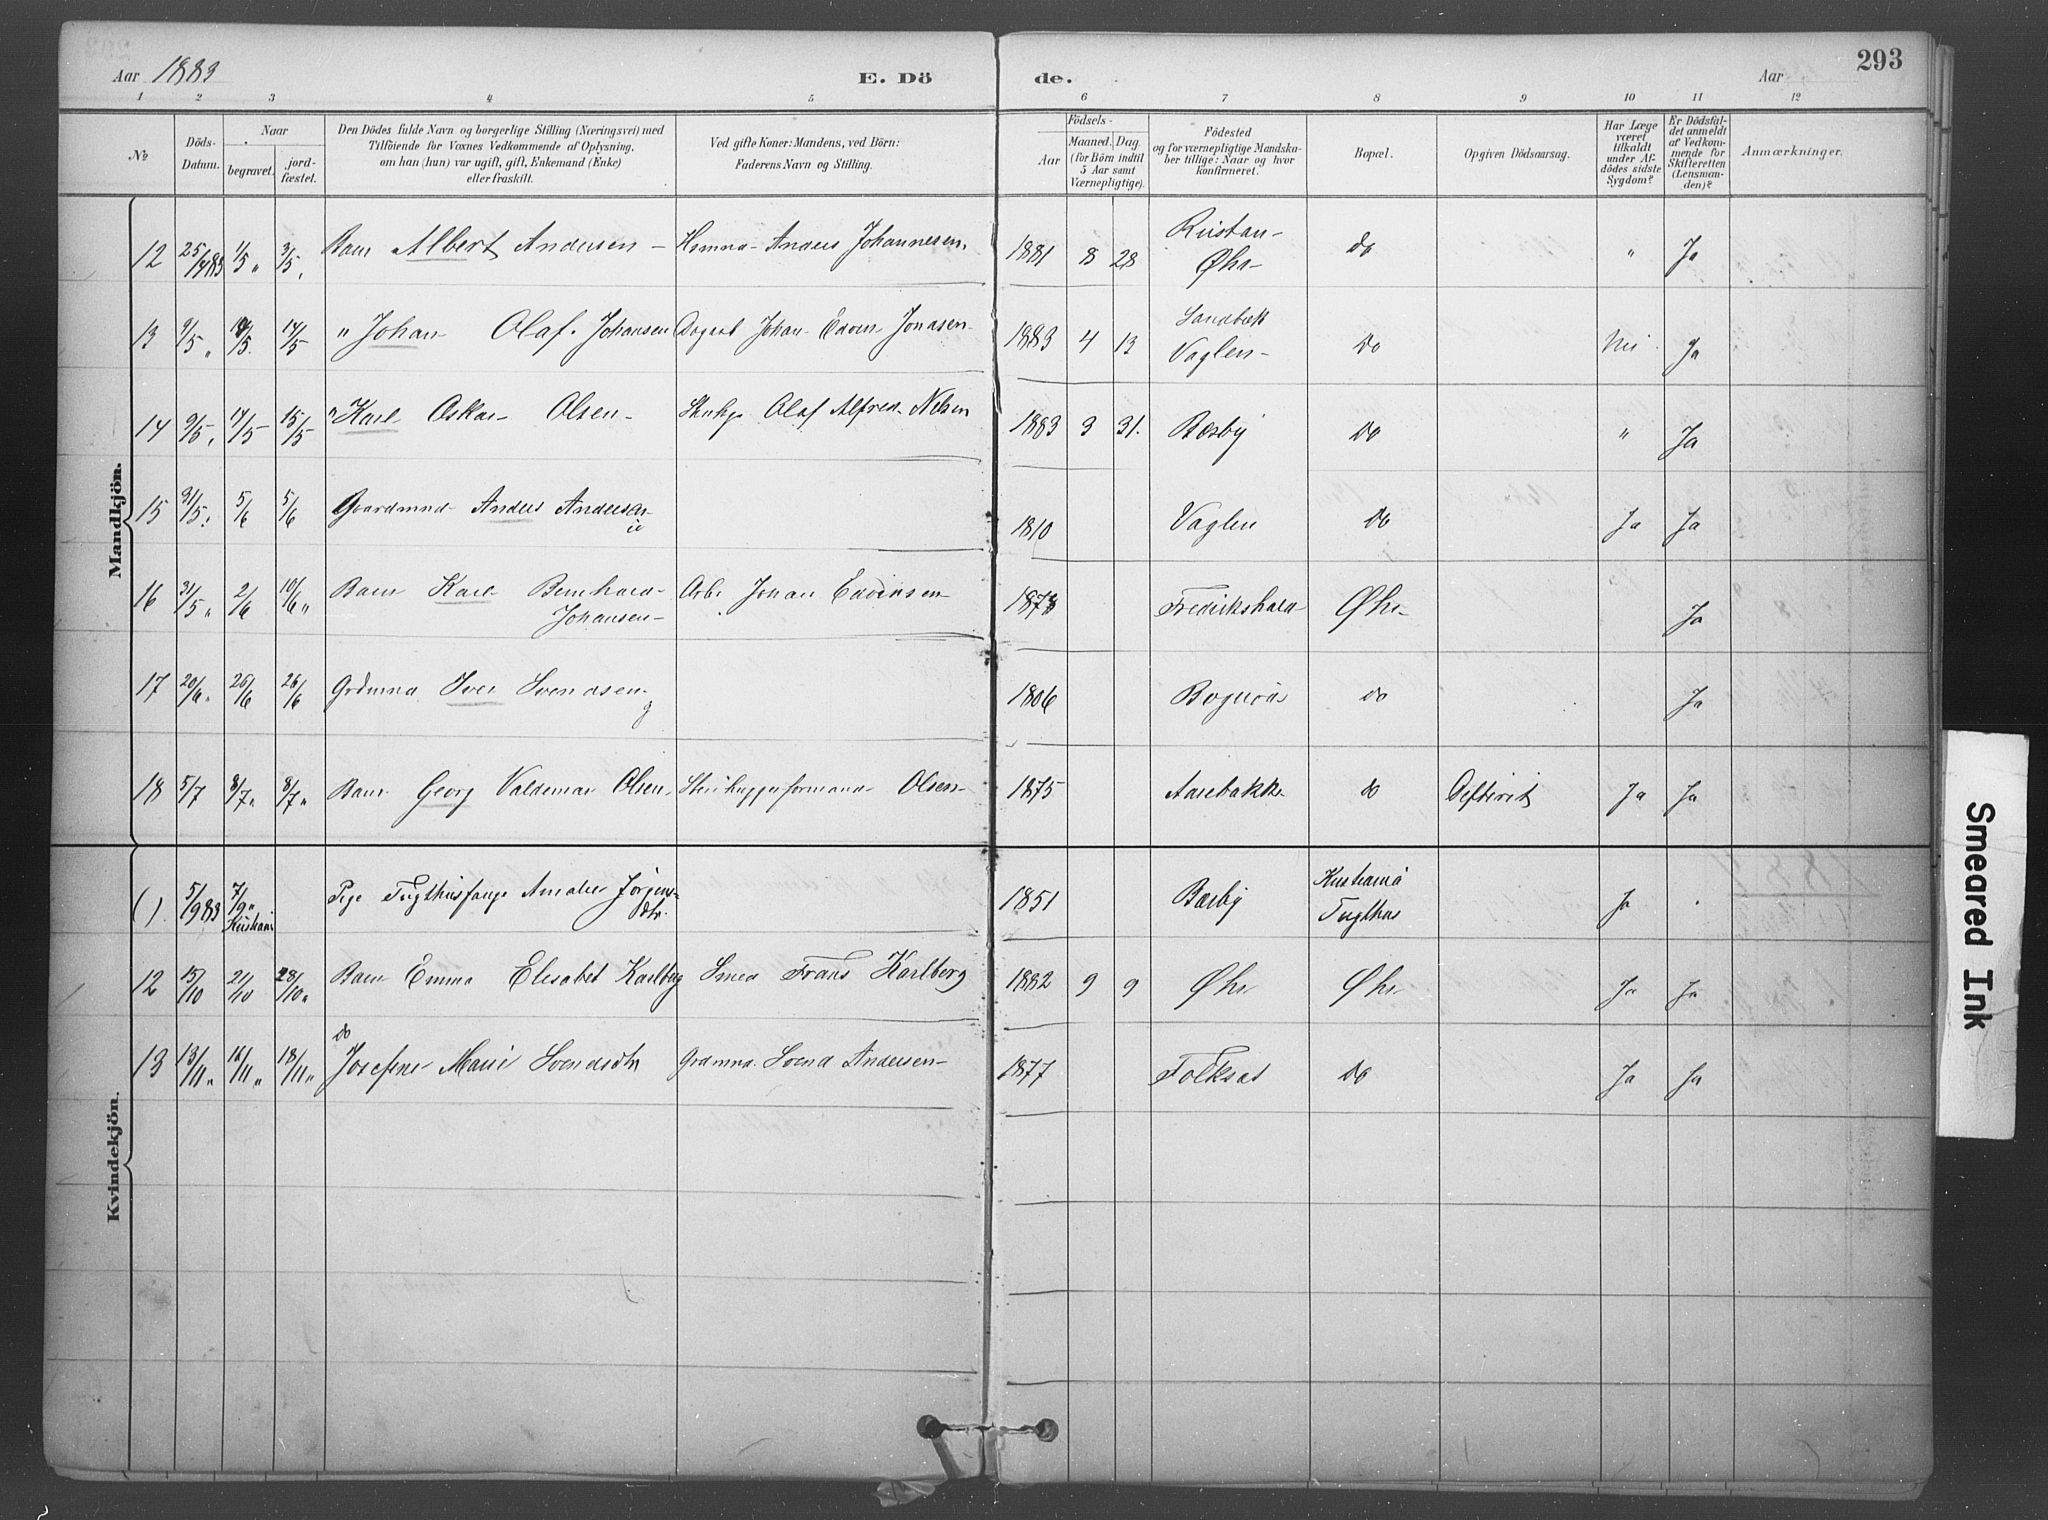 Aar 1883 E. Dö de. Aar 293
1 2 3 4 5 6 7 8 9 10 11 12
No Döds-Datum. Naar begravet. jord-fæstet.
Den Dödes fulde Navn og borgerlige Stilling (Næringsvei) med
Tilföiende for Voxnes Vedkommende af Oplysning,
om han (hun) var ugift, gift, Enkemand (Enke)
eller fraskilt.
Ved gifte Koner: Mandens, ved Börn:
Faderens Navn og Stilling.
Födsels-
Aar Maaned. Dag (for Börn indtil 5 Aar samt Værnepligtige).
Födested
og for værnepligtige Mandska-
ber tillige: Naar og hvor
konfirmeret.
Bopæl.
Opgiven Dödsaarsag.
Har Læge
været
tilkaldt
under Af-
dödes sidste
Sygdom?
Er Dödsfal-
det anmeldt
af Vedkom-
mende for
Skifteretten
(Lensman-
den)?
Anmærkninger.
Mandkjön.
12 25/4 83 1/5 " 3/5 Barn Albert Andersen Anders Johannesen 1881 8 28 Øhr do " Ja
13 9/5 " 14/5 14/5 " Johan Olaf Johansen Johan Edvin Jonasen 1883 4 13 Sandbæk Vaglen do Nei Ja
14 9/5 14/5 15/5 " Karl Oskar Olsen Olaf Alfred Nilsen 1883 3 31. Bærby do " Ja
15 31/5 5/6 5/6 Gaardmnd Anders Andersen 1810 Vaglen do Ja Ja
16 31/5 " 2/6 10/6 " Barn Karl Bernhard Johansen Arb. Johan Edvinsen Fredrikshald Øhr Ja
17 20/6 26/6 26/6 Grdmnd Iver Svendsen g 1806 do Ja
18 5/7 8/7 " 8/7 " Barn Georg Valdemar Olsen Stenhuggerformand Olsen 1875 Aarebakke do Difterit Ja Ja
Kvindekjön.
( ). 5/9 83 7/9 " Kristiania Pige Tugthusfange Amalie Jörgensdtr. 1851 Bærby Kristiania Tugthus Ja
12 15/10 21/10 28/10 " Barn Emma Elisabet Karlberg Smed Frans Karlberg 1882 9 9 Øhr Øhr Ja Ja
13 13/11 " 18/11 " 18/11 " do Josefine Marie Svendsdtr Grdmnd. Svend Andersen 1877 Folksøt do Ja Ja
Smeared Ink